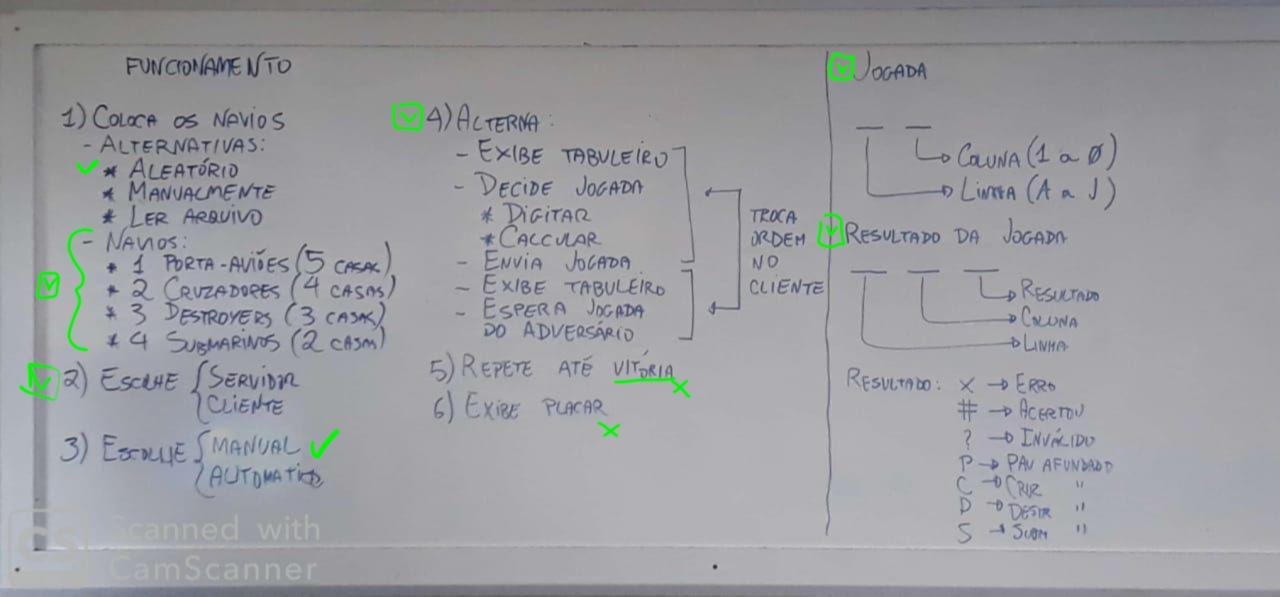 FUNCIONAMENTO
1) COLOCA OS NAVIOS
- ALTERNATIVAS:
* ALEATÓRIO
* MANUALMENTE
* LER ARQUIVO
- NAVIOS:
* 1 PORTA-AVIÕES (5 CASAS)
* 2 CRUZADORES (4 CASAS)
* 3 DESTROYERS (3 CASAS)
* 4 SUBMARINOS (2 CASAS)
2) ESCOLHE { SERVIDOR
CLIENTE
3) ESCOLHE { MANUAL
AUTOMÁTICO
4) ALTERNA:
- EXIBE TABULEIRO
- DECIDE JOGADA
* DIGITAR
* CALCULAR
- ENVIA JOGADA
- EXIBE TABULEIRO
- ESPERA JOGADA
DO ADVERSÁRIO
TROCA
ORDEM
NO
CLIENTE
5) REPETE ATÉ VITÓRIA
6) EXIBE PLACAR
JOGADA
COLUNA (1 a Ø)
LINHA (A a J)
RESULTADO DA JOGADA
RESULTADO
COLUNA
LINHA
RESULTADO: X → ERRO
# → ACERTOU
? → INVÁLIDO
P → PAV AFUNDADO
C → CRIR "
D → DESTR "
S → SUBM "
CS Scanned with
CamScanner